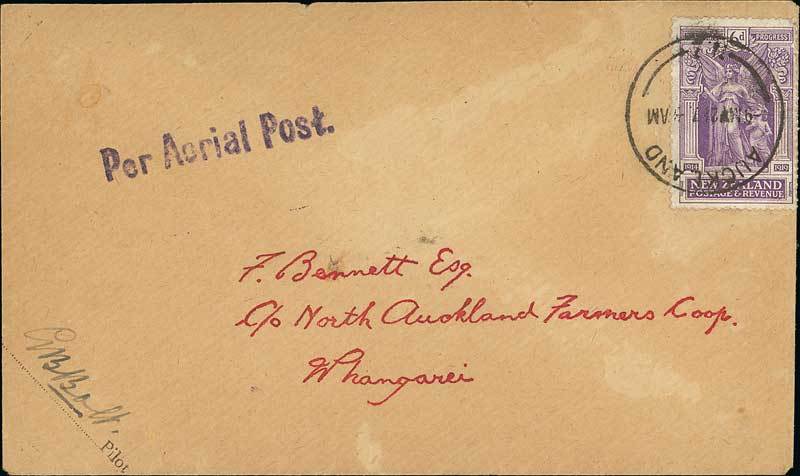 Per Aerial Post.
6d
PROGRESS
1914 1919
NEW ZEALAND
POSTAGE & REVENUE
AUCKLAND
AM
F. Bennett Esq.
C/o North Auckland Farmers Coop.
Whangarei
G B Bolt.
Pilot